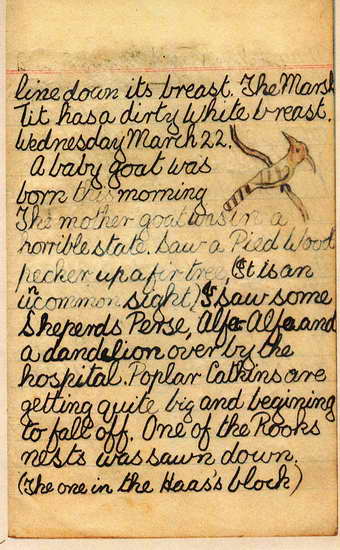 line down its breast. The Marsh
Tit has a dirty White breast.
Wednesday March 22.
A baby goat was
born this morning
The mother goat was in a
horrible state. Saw a Pied Wood
pecker up a fir tree, (It is an
uncommon sight,) I saw some
Sheperds Perse, Alfa-Alfa and
a dandelion over by the
hospital. Poplar Catkins are
getting quite big and begining
to fall off. One of the Rooks
nests was sawn down.
(The one in the Haas's block)